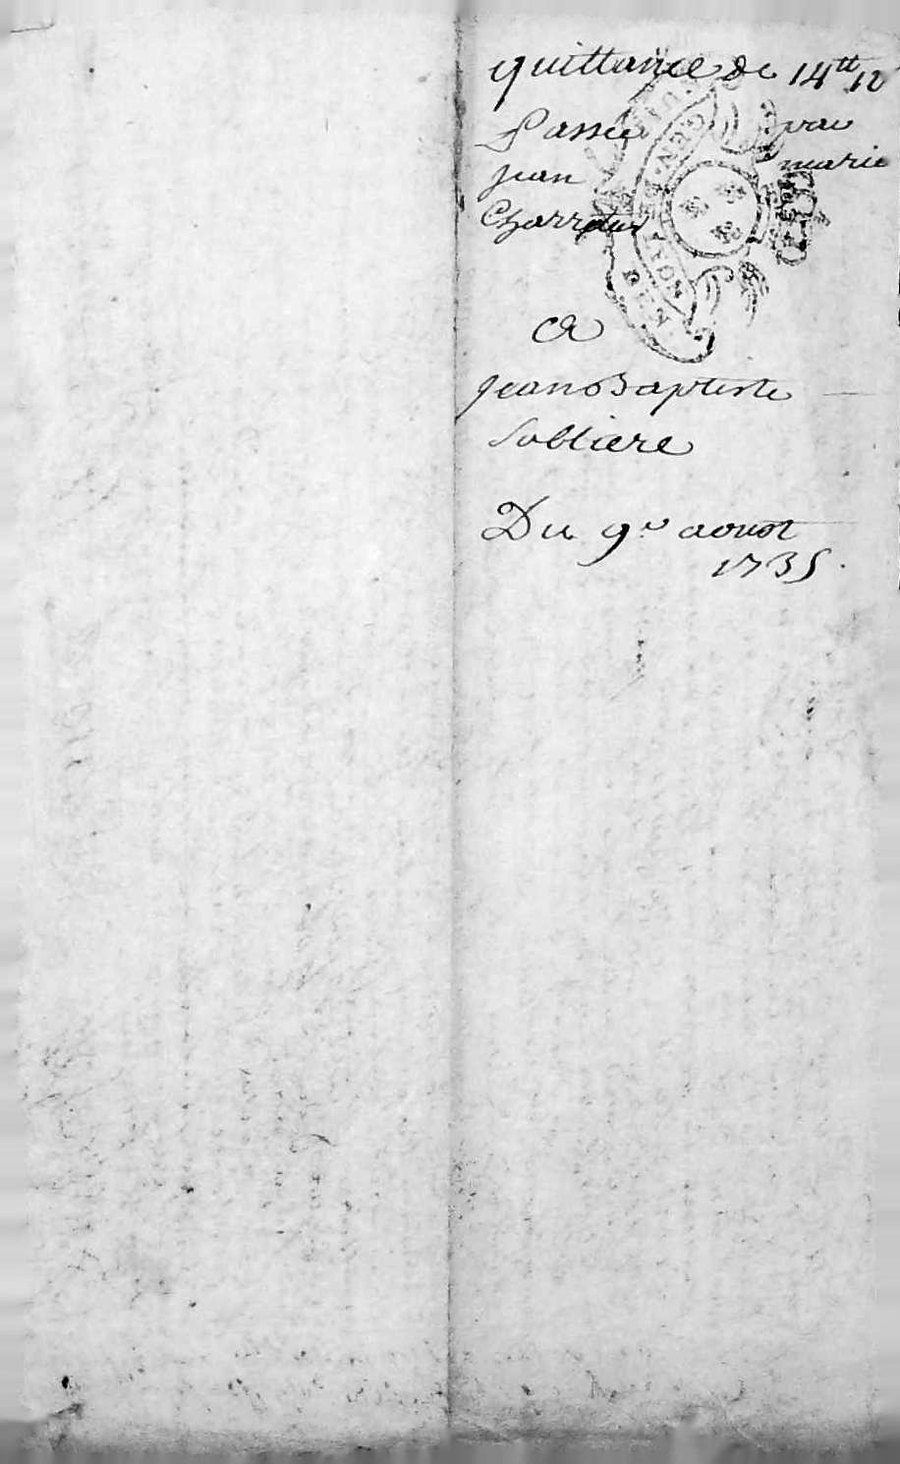 quittance de 14tt 12
Passée par
jean marie
Charretier
a
jean Baptiste
Sabliere
Du 9e aoust
1735.